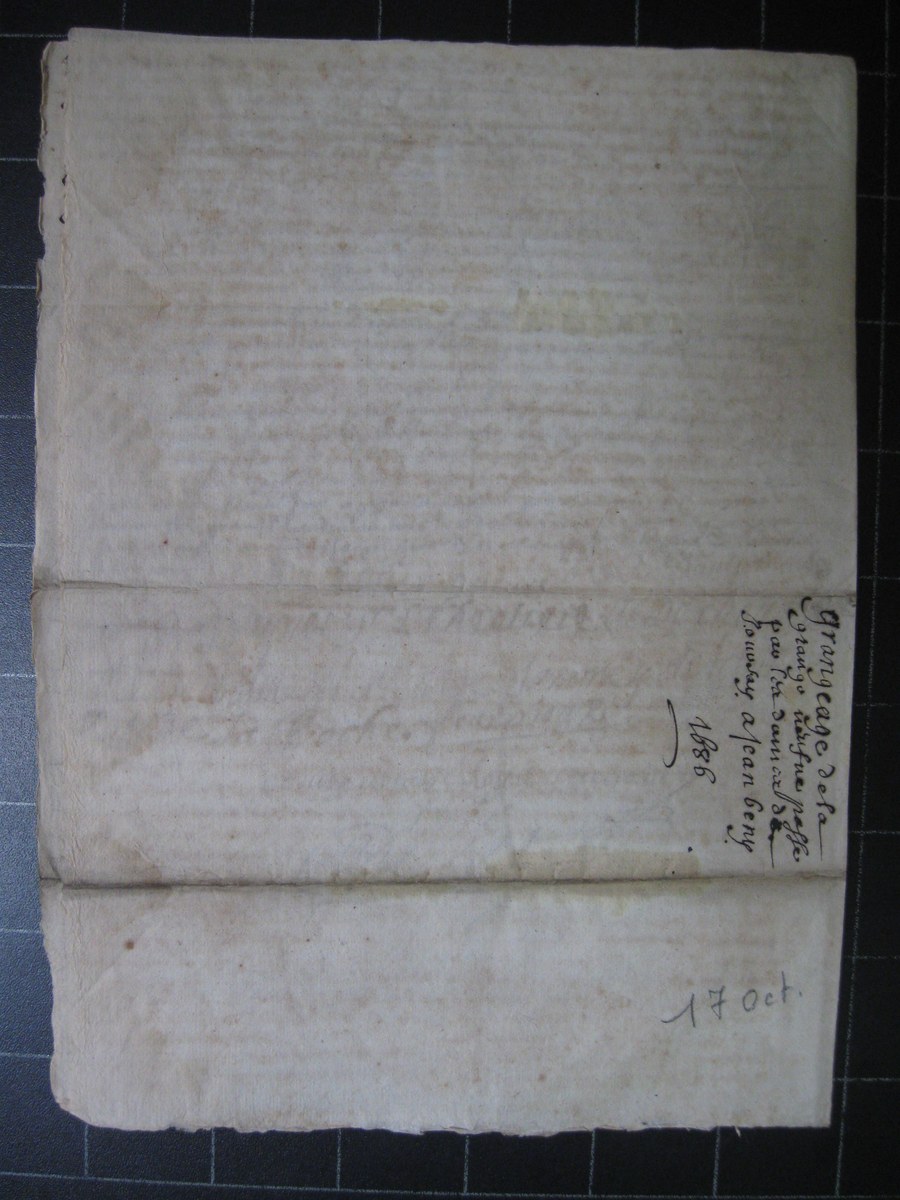 grangeage de la
grange neufue passe
par les dames de
Pouvray a jean beny
1686
17 Oct.